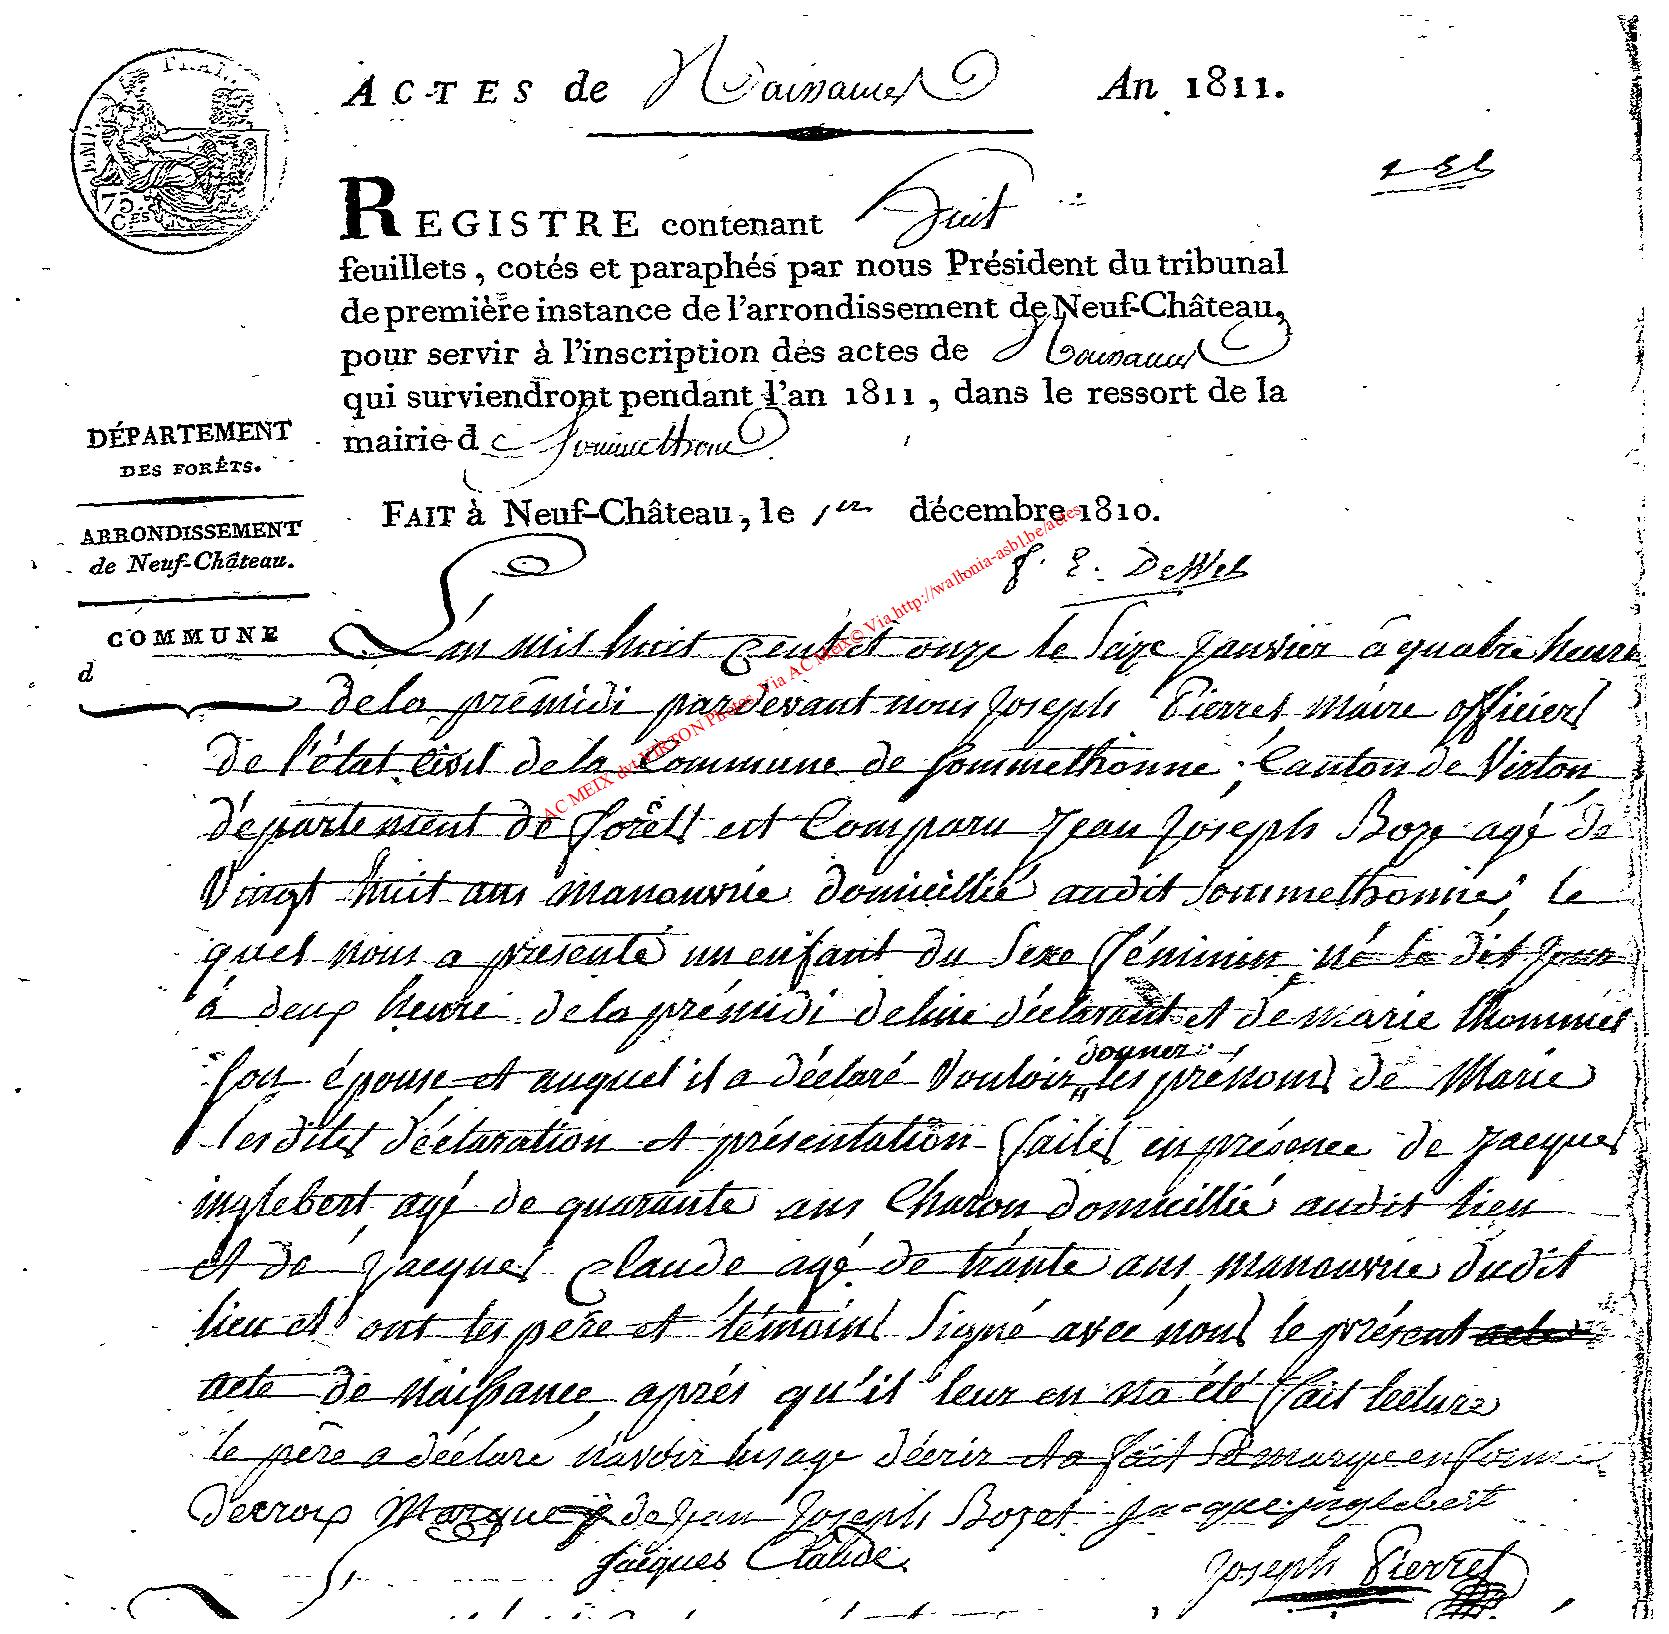 ACTES de Naissances An 1811.
EMP. FRAN.
75 CES
REGISTRE contenant huit
feuillets, cotés et paraphés par nous Président du tribunal
de première instance de l'arrondissement de Neuf-Château,
pour servir à l'inscription des actes de Naissances
qui surviendront pendant l'an 1811, dans le ressort de la
mairie de Sommethonne
DÉPARTEMENT
DES FORÊTS.
FAIT à Neuf-Château, le 1er décembre 1810.
ARRONDISSEMENT
de Neuf-Château.
COMMUNE
d
AC MEIX dvt VIRTON Photos Via AC MEIX© Via http://wallonia-asbl.be/actes
L'an mil huit cent et onze le Seize Janvier à quatre heure
de la prêmidi pardevant nous Joseph Pierret Maire officier
de l'état civil de la Commune de Sommethonne, Canton de Virton
département de forêts est Comparu Jean Joseph Boze agé de
Vingt huit ans manouvrié domicillié audit Sommethonne, le
quel nous a présenté un enfant du Sexe féminin né le dit Jour
à deux heure de la prémidi de lui déclarant et de marie Thommes
Son épouse et auquel il a déclaré Vouloir donner les prénoms de Marie
Lesdites déclaration et présentation faites en présence de Jacques
inglebert agé de quarante ans Charon domicillié audit lieu
et de Jacques Claude agé de trante ans manouvrié dudit
lieu et ont les père et témoins Signé avec nous le présent acte
acte de naissance après qu'il leur en na été fait lecture
le père a déclaré n'avoir lusage décrir et a fait Sa marque en forme
de croix Marque de Jean Joseph Bozet Jacque inglebert
Jacques Claude
Joseph Pierret